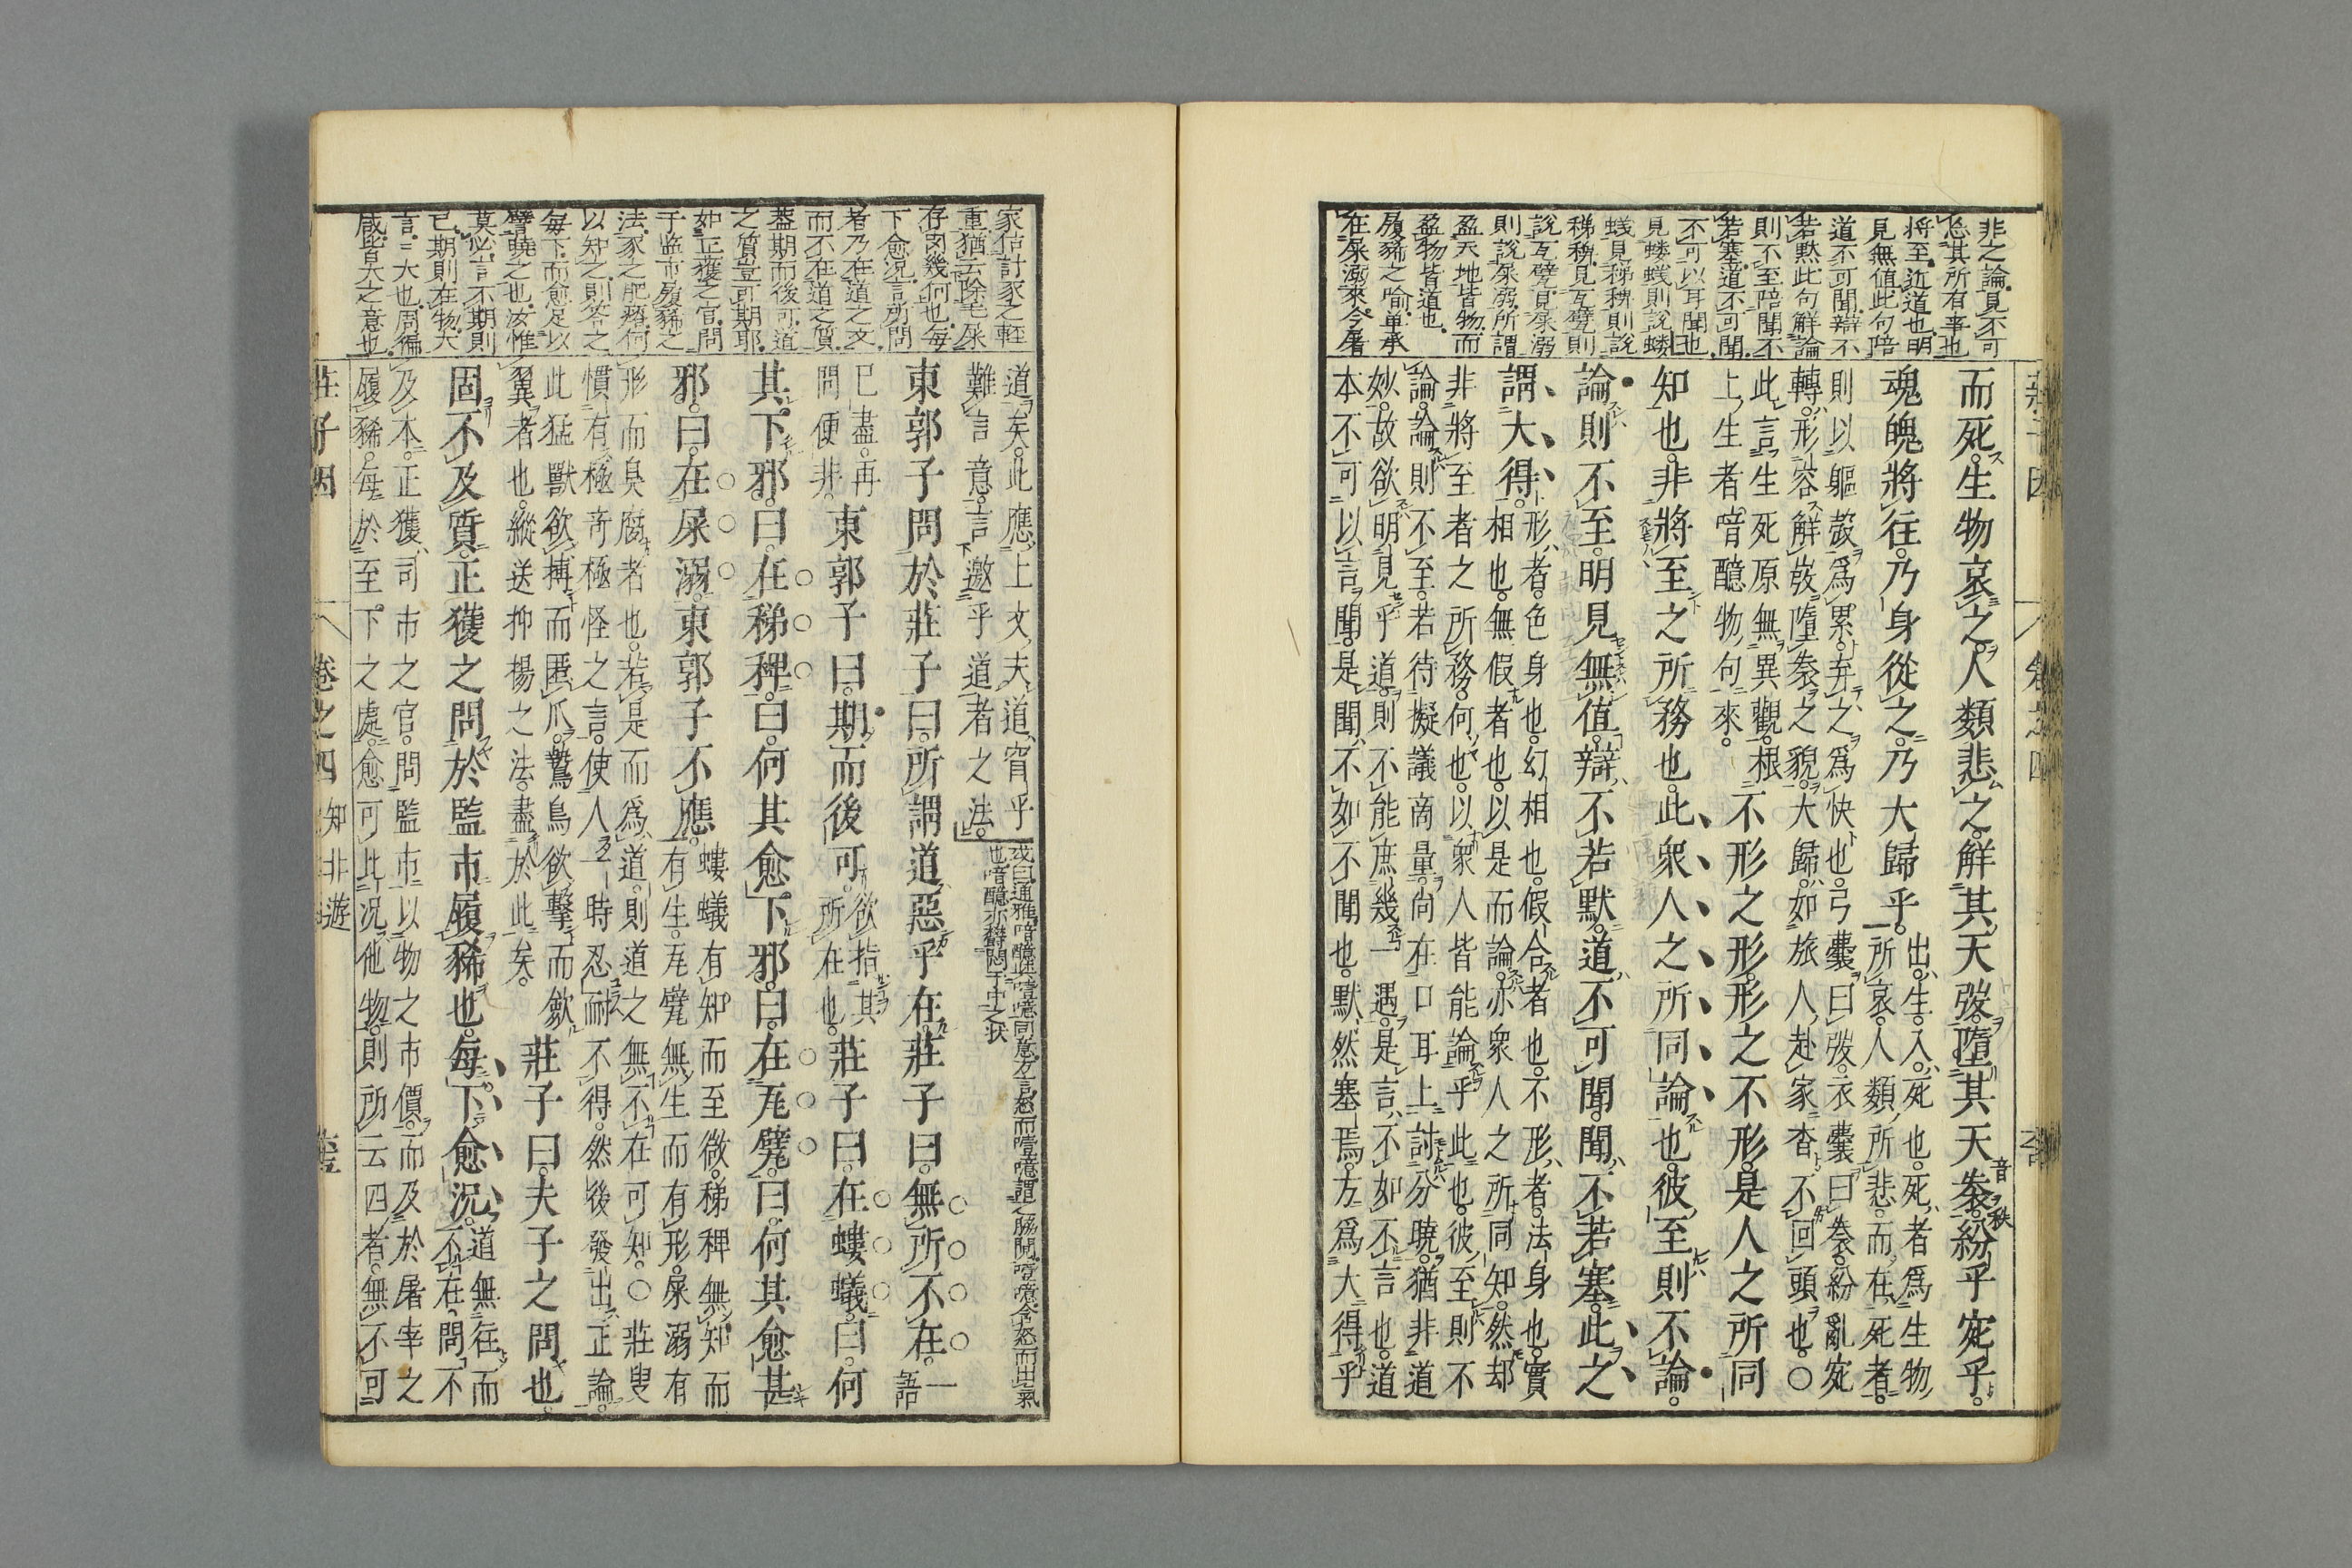 莊子因 卷之四
非之論見不可
忘其所有事也
將至近道也明
見無值此句陪
道不可聞辯不
若黙此句解論
則不至陪聞不
若塞道不可聞
不可以耳聞也
見螻蟻則説螻
蟻見稊稗則説
稊稗見瓦甓則
説瓦甓見屎溺
則説屎溺所謂
盈天地皆物而
盈物皆道也
履豨之喻単承
在屎溺來今屠
而死。生物哀之。人類悲之。解其天弢。墮其天袠。音秩紛乎宛乎。
魂魄將往。乃身從之。乃大歸乎。
出生。入死也。死者爲生物
所哀。人類所悲。而在死者。
則以軀殼爲累。弃之爲快也。弓嚢曰弢。衣嚢曰袠。紛亂宛
轉。形容解弢墮袠之貌。大歸。如旅人赴家。杳不回頭也。○
此言生死原無異觀。根
上生者喑醷物句來。
不形之形。形之不形。是人之所同
知也。非將至之所務也。此衆人之所同論也。彼至則不論。
論則不至。明見無值。辯不若默。道不可聞。聞不若塞。此之
謂大得。
形者。色身也。幻相也。假合者也。不形者。法身也。實
相也。無假者也。以是而論。亦衆人之所同知。然却
非將至者之所務。何也。以衆人皆能論乎此也。彼至則不
論。論則不至。若待擬議商量。尚在口耳上討分曉。猶非道
妙。故欲明見乎道。則不能庶幾一遇。是言不如不言也。道
本不可以言聞。是聞不如不聞也。默然塞焉。方爲大得乎
家估計豕之輕
重猶云除毛屎
存肉幾何也每
下愈况言所問
者乃在道之文
而不在道之質
葢期而後可道
之質豈可期耶
如正獲之官問
于監市履豨之
法豕之肥瘠何
以知之則答之
每下而愈足以
譬曉之也汝惟
莫必言不期則
已期則在物大
言二大也周徧
咸皆大之意也
道矣。此應上文夫道。窅乎
難言意。言邀乎道者之法。
或曰通雅喑醷噫嘻同意方言怒而噎噫謂之脇鬩喑噫含怒而出氣
也喑醷亦欝悶于中之狀
東郭子問於莊子曰。所謂道惡乎在。莊子曰。無所不在。一語
已盡。再
問便非。
東郭子曰。期而後可。
欲指其
所在也。
莊子曰。在螻蟻。曰。何
其下邪。曰。在稊稗。曰。何其愈下邪。曰。在瓦甓。曰。何其愈甚
邪。曰。在屎溺。東郭子不應。
螻蟻有知而至微。稊稗無知而
有生。瓦甓無生而有形。屎溺有
形而臭腐者也。若是而爲道。則道之無不在可知。○莊叟
慣有極奇極怪之言。使人一時忍耐不得。然後發出正論。
此猛獸欲搏而匿爪。鷙鳥欲擊而歛
翼者也。縱送抑揚之法。盡於此矣。
莊子曰。夫子之問也。
固不及質。正獲之問於監市履豨也。每下愈況。
道無往而
不在。問不
及本。正獲。司市之官。問監市以物之市價。而及於屠宰之
履豨。每於至下之處。愈可比况他物。則所云四者。無不可
莊子因 卷之四 知北遊